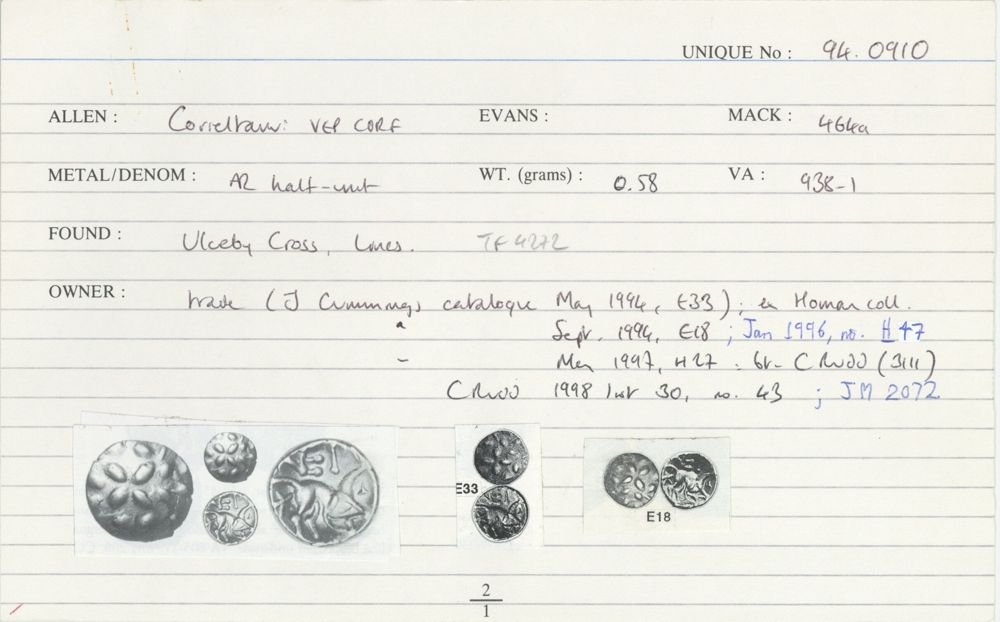 UNIQUE No : 94.0910
ALLEN : Corieltauvi VEP CORF EVANS : MACK : 464a
METAL/DENOM : AR half-unit WT. (grams) : 0.58 VA : 938-1
FOUND : Ulceby Cross, Lincs. TF4272
OWNER : trade (J Cummings catalogue May 1994, E33) ; ex Homan coll.
" Sept. 1994, E18 ; Jan 1996, no. H47
– May 1997, H27 . C Rudd (3111)
C Rudd 1998 list 30, no. 43 ; JM 2072
E33
E18
2
1